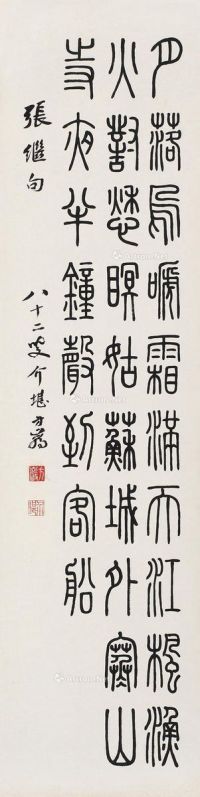 月落烏嗁霜滿天江楓漁
火對愁瞑姑蘇城外寒山
寺夜半鐘聲到客船
張繼句
八十二叟介堪方巖